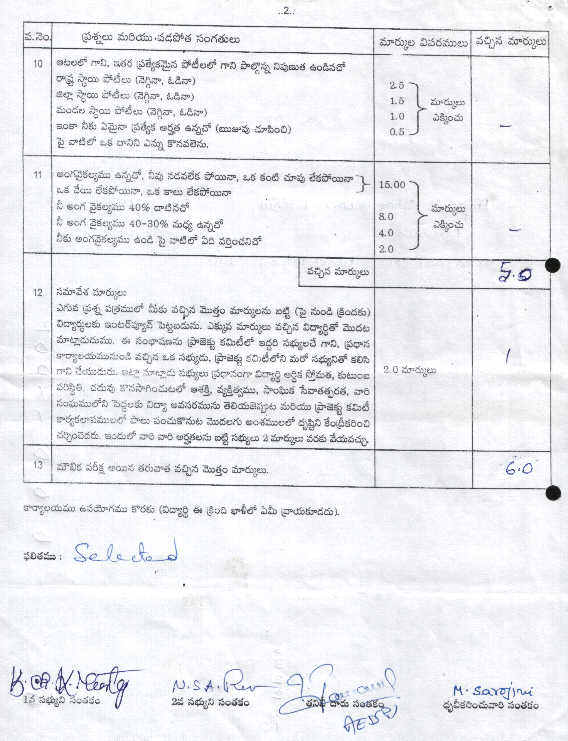 ..2..
వ.నెం. ప్రశ్నలు మరియు వడపోత సంగతులు మార్కుల వివరములు వచ్చిన మార్కులు
10 ఆటలలో గాని, ఇతర ప్రత్యేకమైన పోటీలలో గాని పాల్గొన్న నిపుణుత ఉండినచో
రాష్ట్ర స్థాయి పోటీలు (నెగ్గినా, ఓడినా) 2.5
జిల్లా స్థాయి పోటీలు (నెగ్గినా, ఓడినా) 1.5 మార్కులు
మండల స్థాయి పోటీలు (నెగ్గినా, ఓడినా) 1.0 ఎక్కించు
ఇంకా నీకు ఏమైనా ప్రత్యేక అర్హత ఉన్నచో (ఋజువు చూపించి) 0.5 –
పై వాటిలో ఒక దానిని ఎన్ను కొనవలెను.
11 అంగవైకల్యము ఉన్నచో, నీవు నడవలేక పోయినా, ఒక కంటి చూపు లేకపోయినా 15.00
ఒక చేయి లేకపోయినా, ఒక కాలు లేకపోయినా
నీ అంగ వైకల్యము 40% దాటినచో 8.0 మార్కులు
నీ అంగ వైకల్యము 40-30% మధ్య ఉన్నచో 4.0 ఎక్కించు –
నీకు అంగవైకల్యము ఉండి పై వాటిలో ఏది వర్తించనిచో 2.0
వచ్చిన మార్కులు 5.0
12 సమావేశ మార్కులు
ఎగువ ప్రశ్న పత్రములో నీకు వచ్చిన మొత్తం మార్కులను బట్టి (పై నుండి క్రిందకు)
విద్యార్థులకు ఇంటర్‌వ్యూన్ పెట్టబడును. ఎక్కువ మార్కులు వచ్చిన విద్యార్థితో మొదట
మాట్లాడుదుము. ఈ సంభాషణను ప్రాజెక్టు కమిటీలో ఇద్దరి సభ్యులచే గాని, ప్రధాన
కార్యాలయమునుండి వచ్చిన ఒక సభ్యుడు, ప్రాజెక్టు కమిటీలోని మరో సభ్యునితో కలిసి
గాని చేయుదురు. ఇట్లా మాట్లాడు సభ్యులు ప్రధానంగా విద్యార్థి ఆర్థిక స్తోమత, కుటుంబ 2.0 మార్కులు 1
పరిస్థితి, చదువు కొనసాగించుటలో ఆశక్తి, వ్యక్తిత్వము, సాంఘిక సేవాతత్పరత, వారి
సంఘములోని పెద్దలకు విద్యా అవసరమును తెలియజెప్పుట మరియు ప్రాజెక్టు కమిటీ
కార్యకలాపములలో పాలు పంచుకొనుట మొదలగు అంశములలో దృష్టిని కేంద్రీకరించి
చర్చించెదరు. ఇందులో వారి వారి అర్హతలను బట్టి సభ్యులు 2 మార్కులు వరకు వేయవచ్చు.
13 మౌఖిక పరీక్ష అయిన తరువాత వచ్చిన మొత్తం మార్కులు. 6.0
కార్యాలయము ఉపయోగము కొరకు (విద్యార్థి ఈ క్రింది ఖాళీలో ఏమీ వ్రాయకూడదు).
ఫలితము : Selected
N.S.A. Rao M. Sarojini
1వ సభ్యుని సంతకం 2వ సభ్యుని సంతకం తనిఖీ దారు సంతకం ధృవీకరించువారి సంతకం